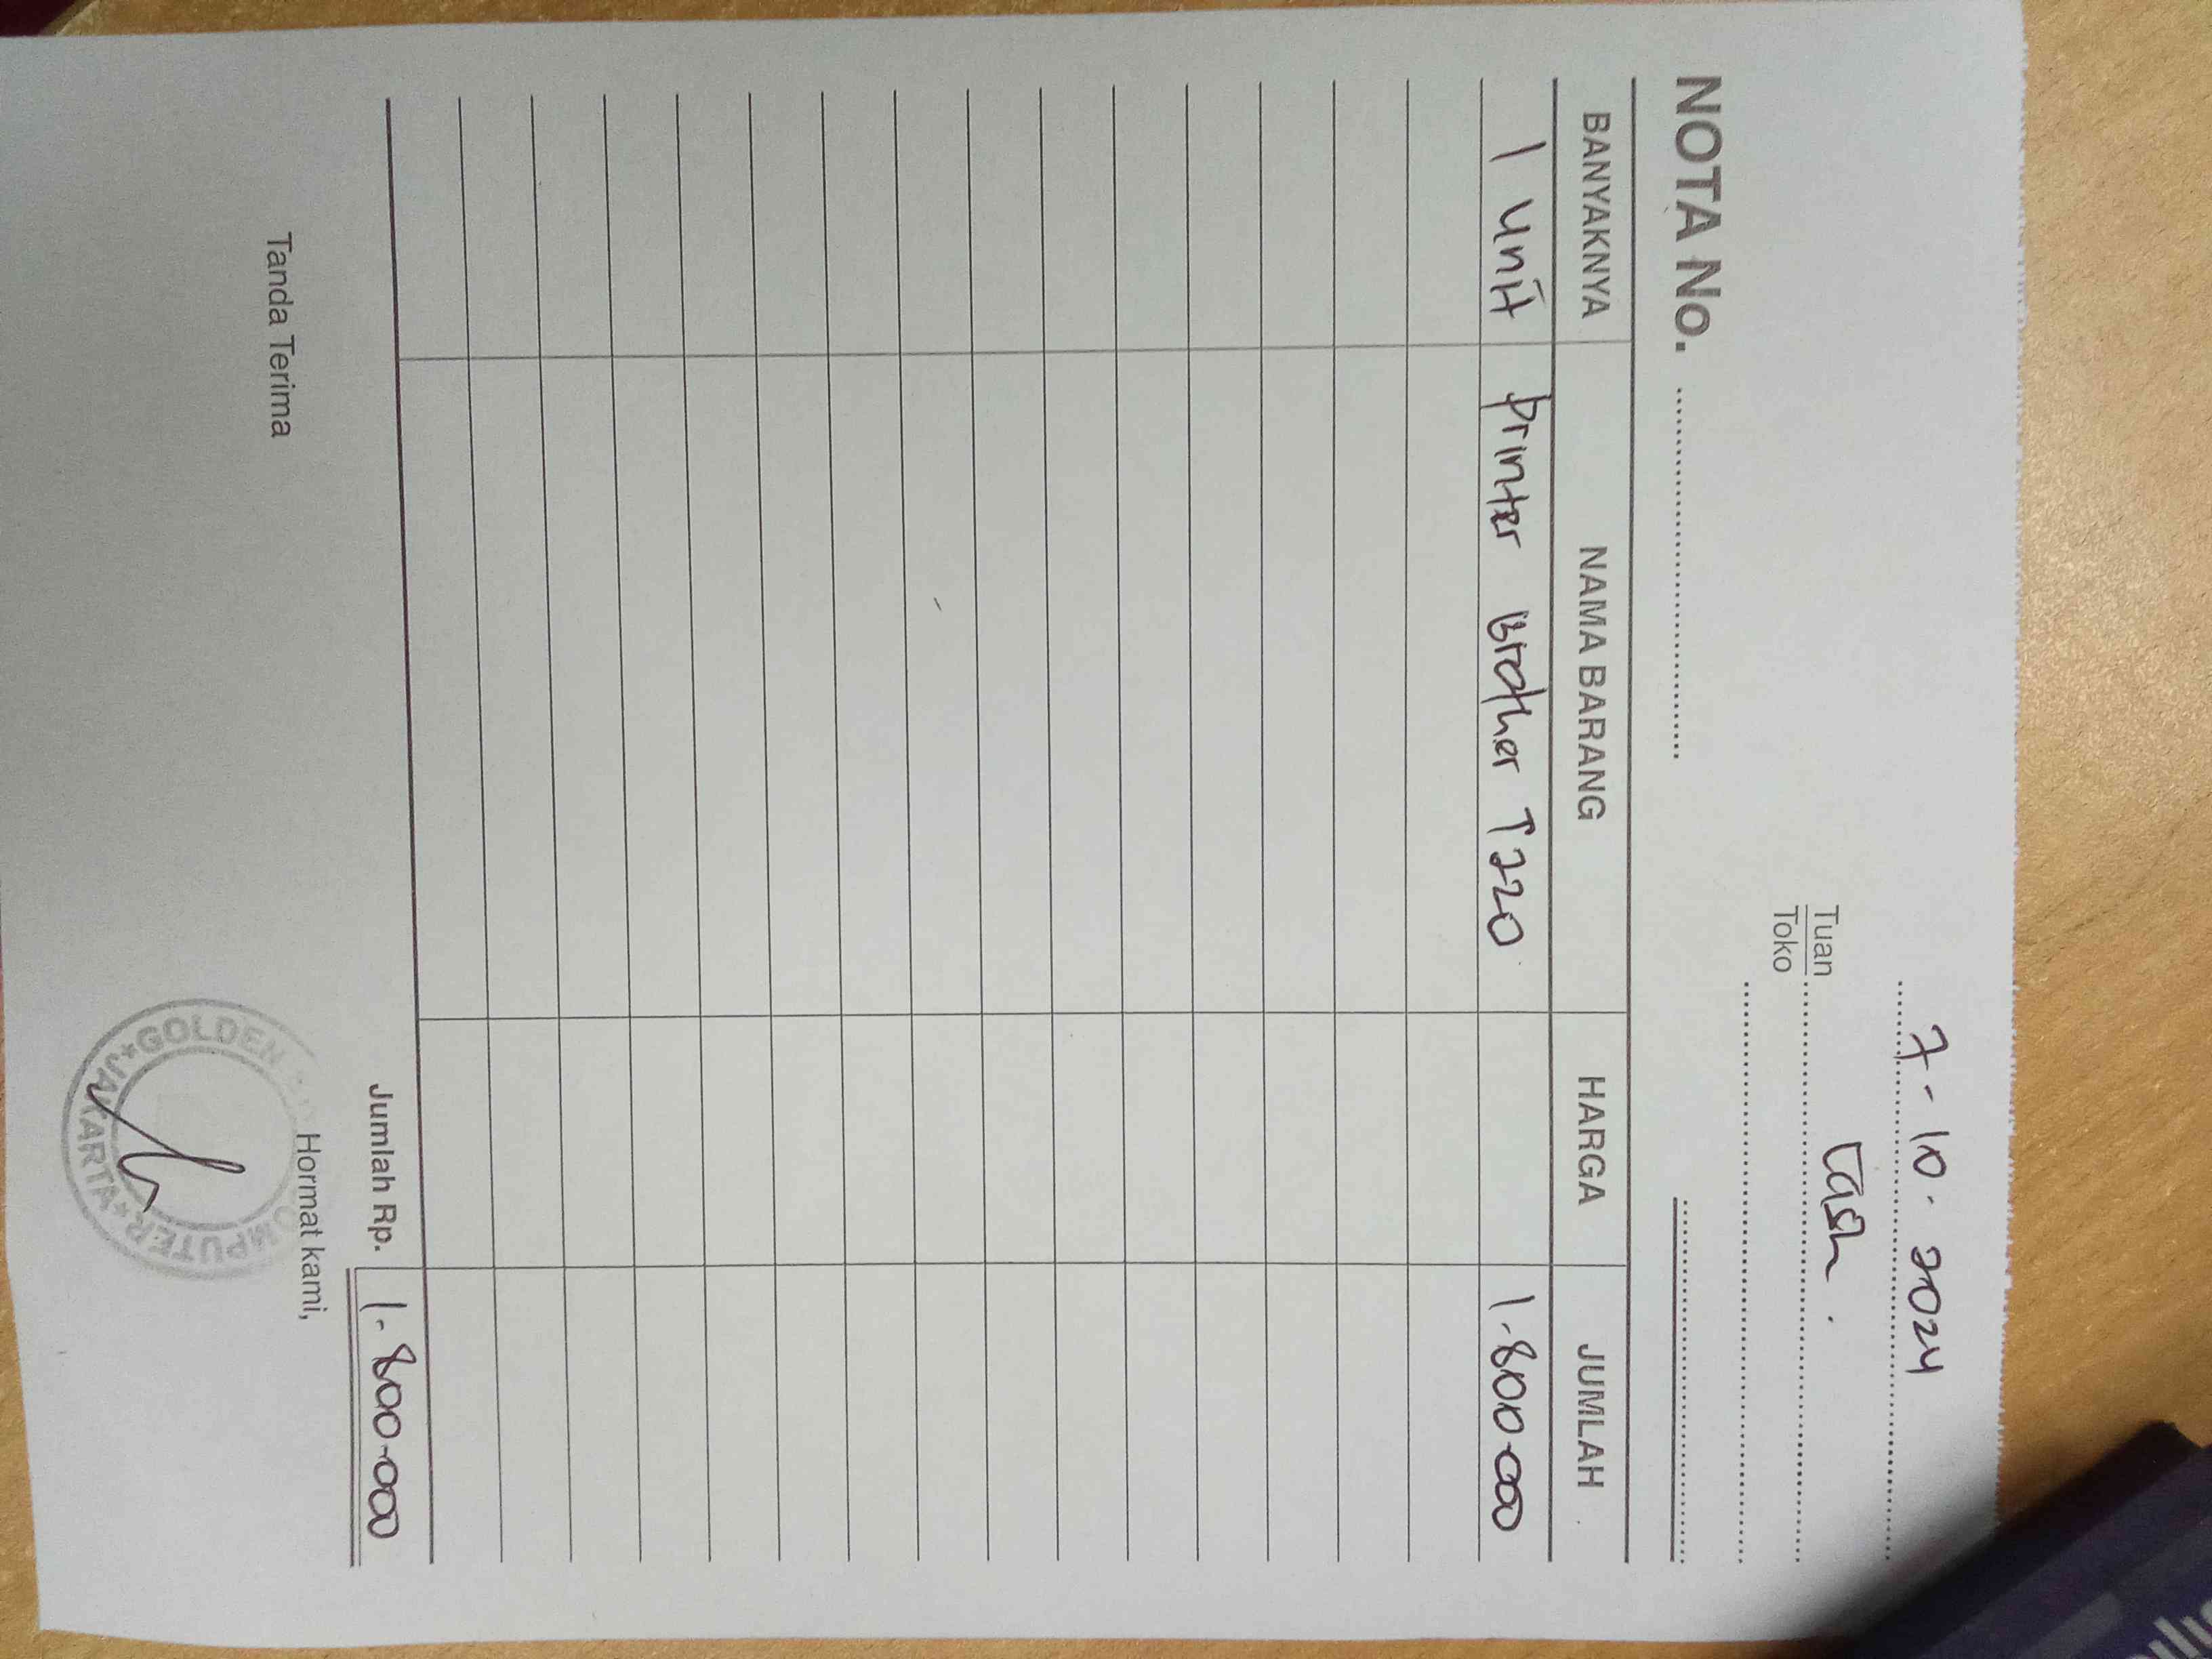 7-10-2024
Tuan Cash.
Toko
NOTA No.
BANYAKNYA NAMA BARANG HARGA JUMLAH
1 unit Printer Brother T220 1.800.000
Jumlah Rp. 1.800.000
Tanda Terima Hormat kami,
GOLDEN COMPUTER
JAKARTA